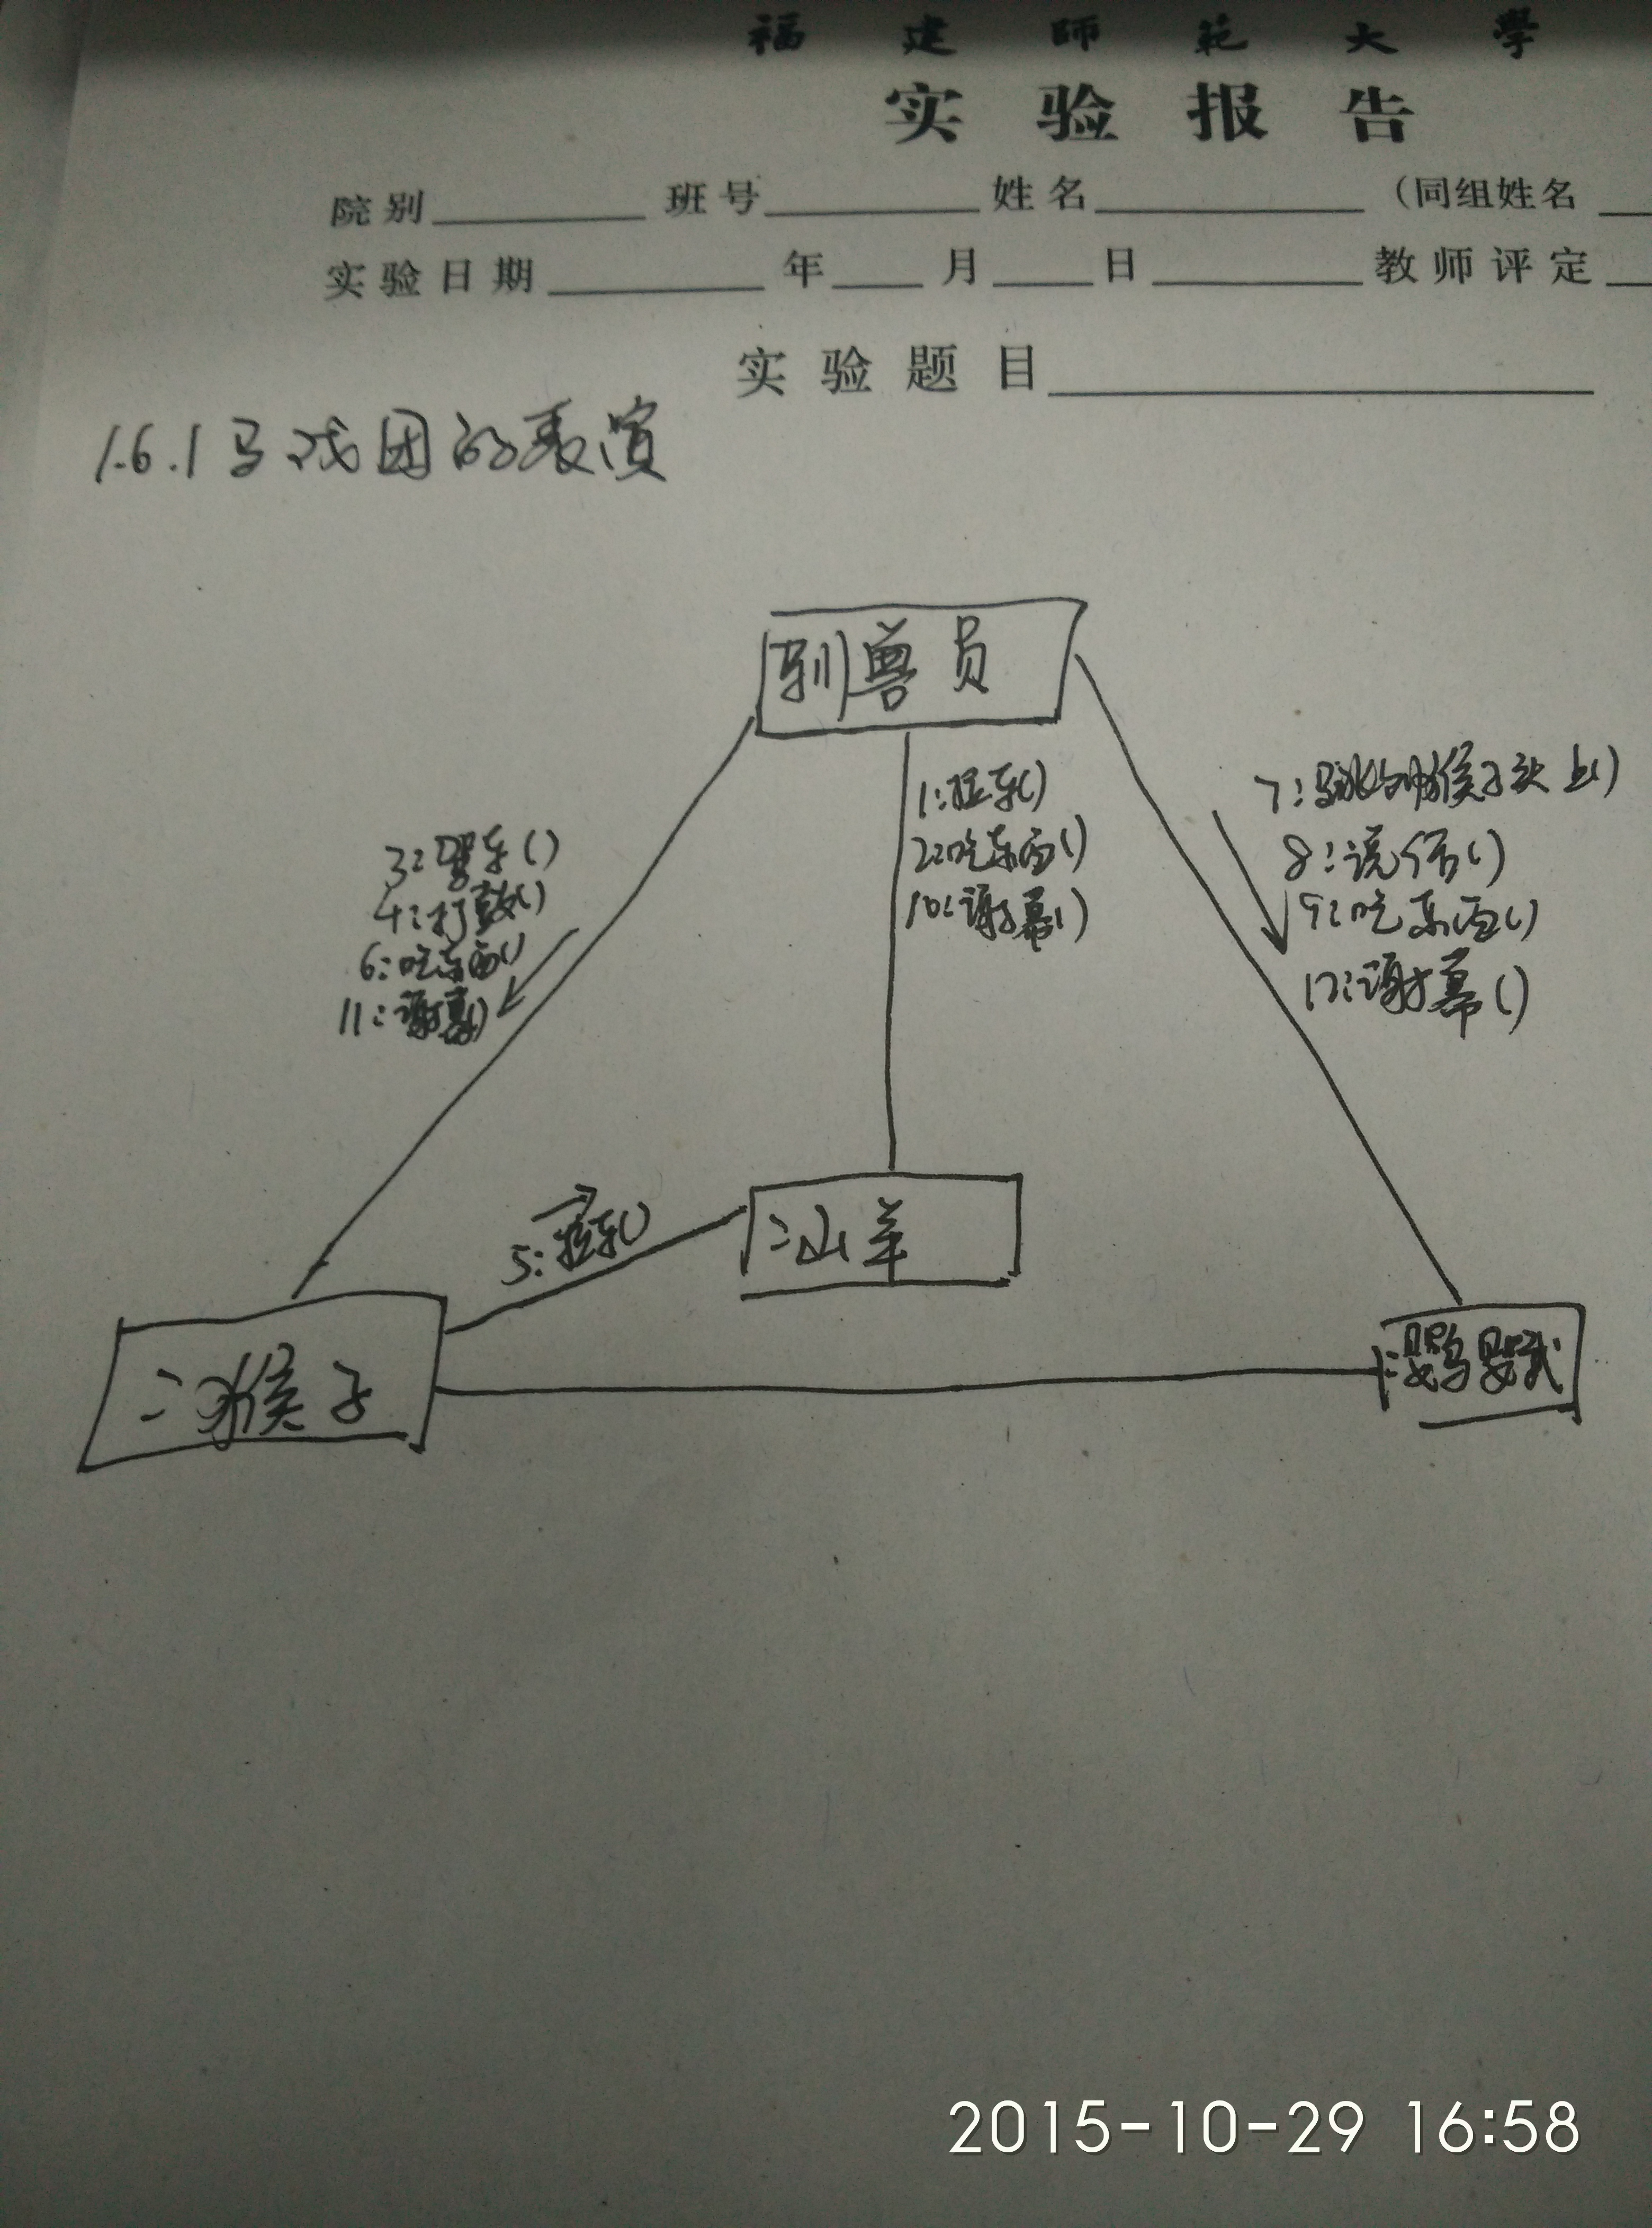 福建師範大學
实验报告
院别 班号 姓名 (同组姓名
实验日期 年 月 日 教师评定
实验题目
1.6.1马戏团的表演
驯兽员
1:拉车()
2:吃东西()
10:谢幕()
3:驾车()
4:打鼓()
6:吃东西()
11:谢幕()
7:跳到猴子头上()
8:说话()
9:吃东西()
12:谢幕()
5:拉车()
:山羊
:猴子
:鹦鹉
2015-10-29 16:58